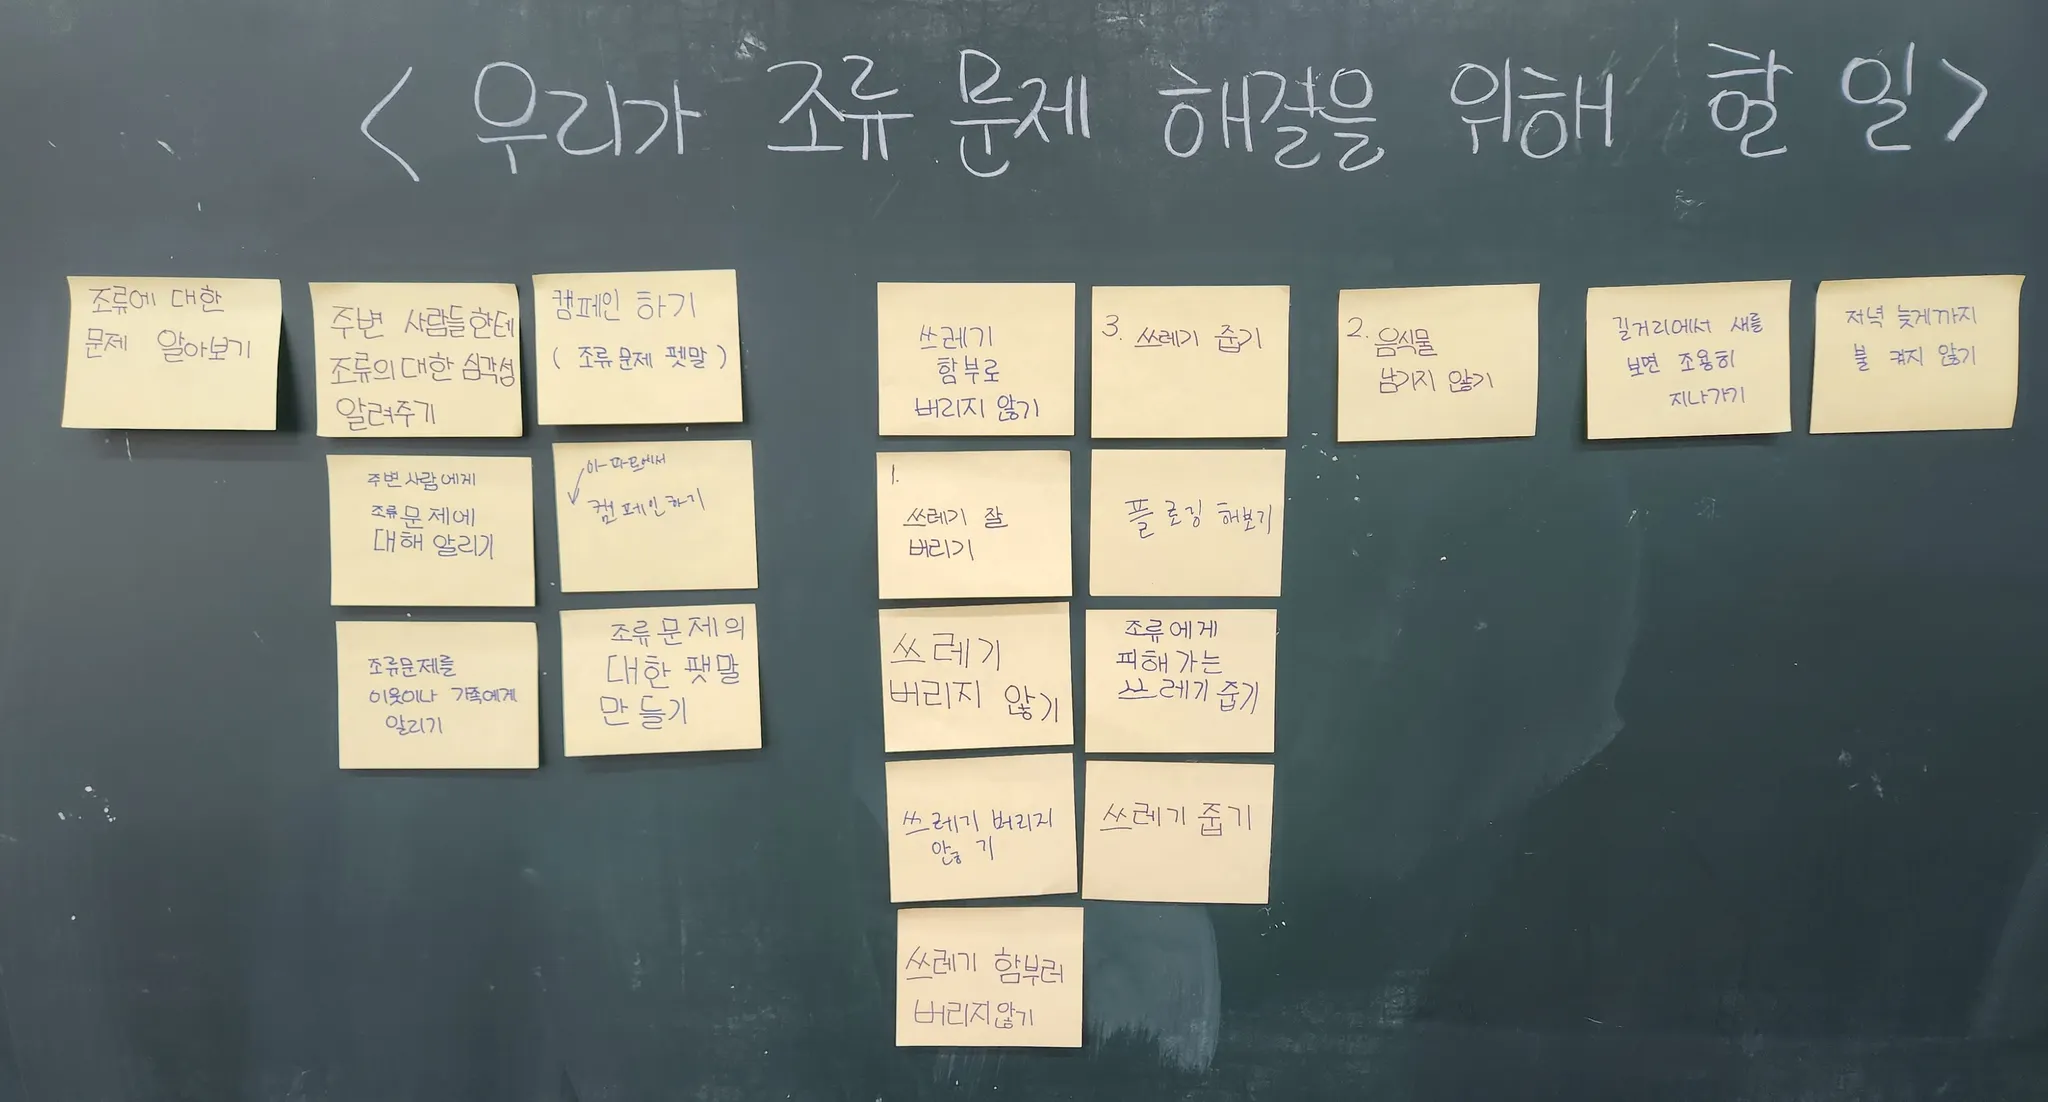 < 우리가 조류 문제 해결을 위해 할 일 >
조류에 대한
문제 알아보기
주변 사람들한테
조류의 대한 심각성
알려주기
주변 사람에게
조류 문제에
대해 알리기
조류문제를
이웃이나 가족에게
알리기
캠페인 하기
( 조류 문제 펫말 )
아파트에서
캠페인 하기
조류 문제의
대한 팻말
만들기
쓰레기
함부로
버리지 않기
1.
쓰레기 잘
버리기
쓰레기
버리지 않기
쓰레기 버리지
안ㅎ기
쓰레기 함부러
버리지 않기
3. 쓰레기 줍기
플로깅 해보기
조류에게
피해 가는
쓰레기 줍기
쓰레기 줍기
2. 음식물
남기지 않기
길거리에서 새를
보면 조용히
지나가기
저녁 늦게까지
불 켜지 않기